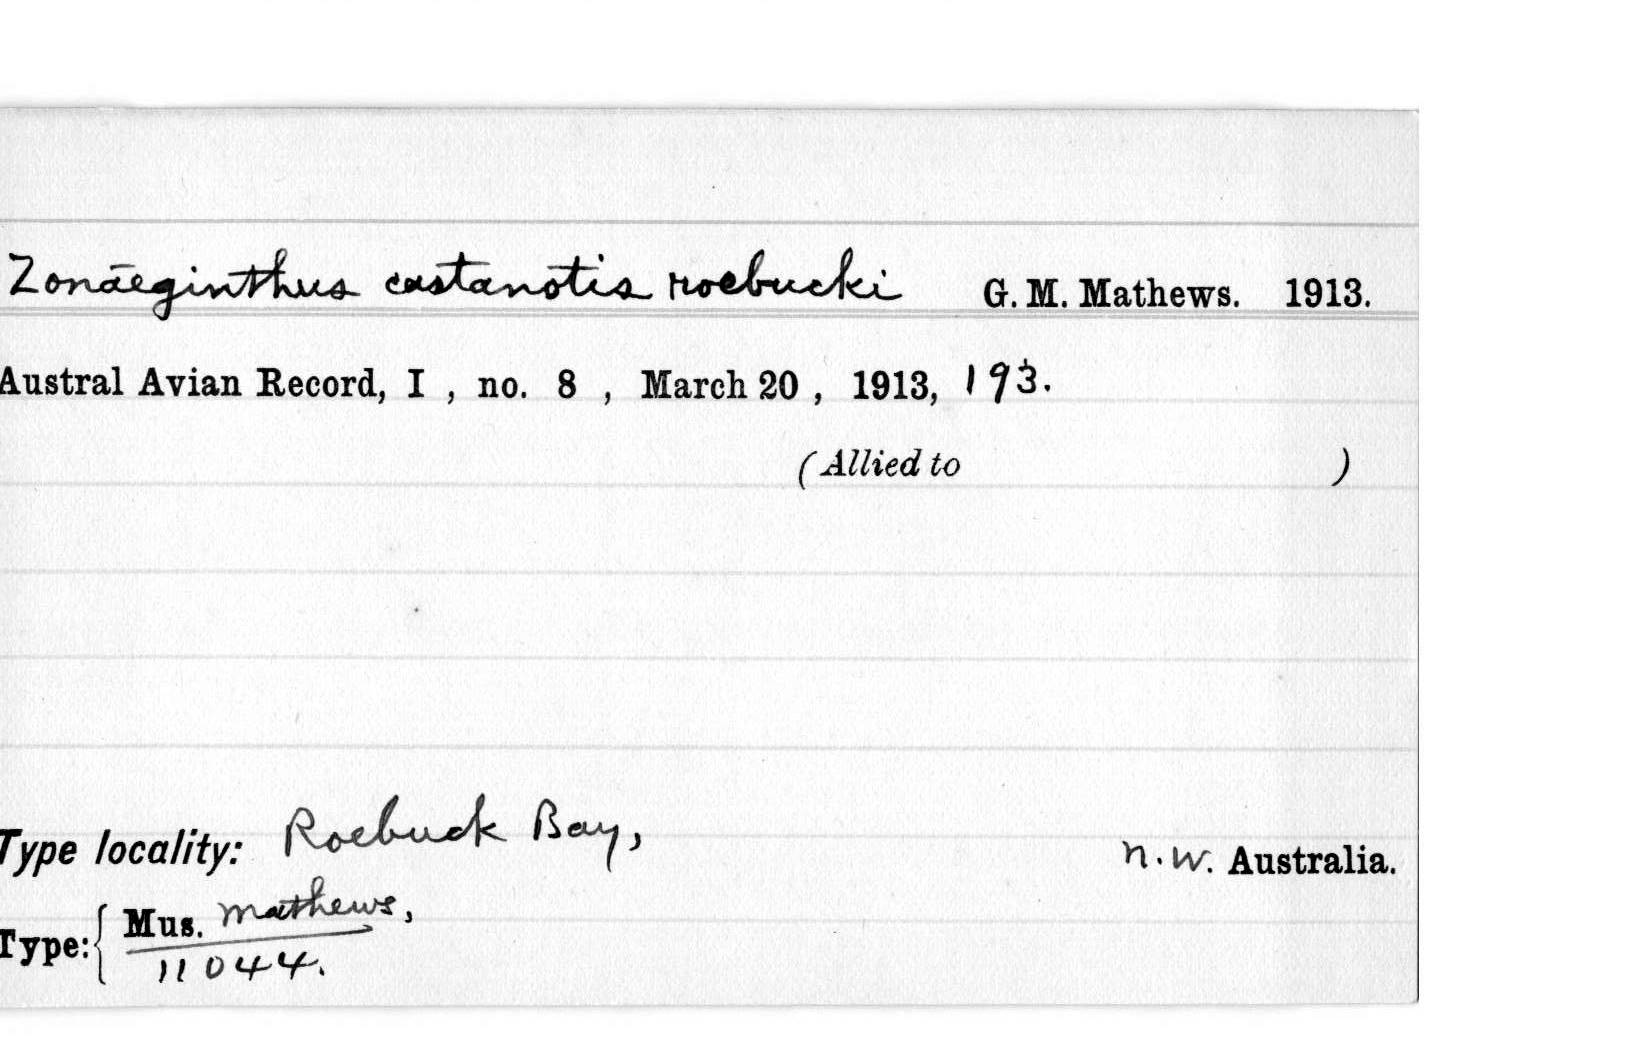 Zonaeginthus castanotis roebucki G. M. Mathews. 1913.
Austral Avian Record, I , no. 8 , March 20 , 1913, 193.
(Allied to )
Type locality: Roebuck Bay, N.W. Australia.
Type: { Mus. Mathews,
11044.